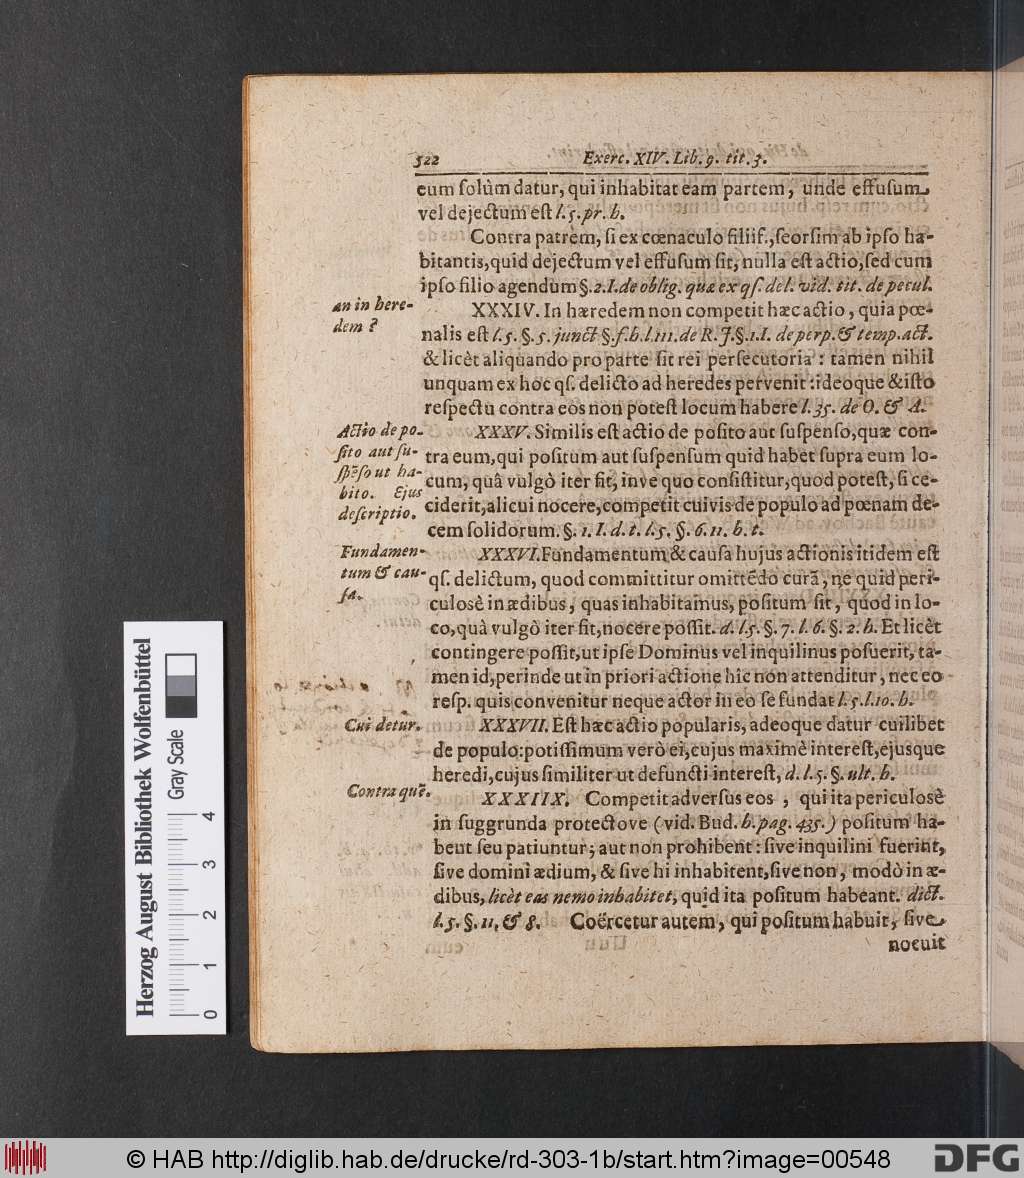 522 Exerc. XIV. Lib. 9. tit. 3.
eum solùm datur, qui inhabitat eam partem, unde effusum
vel dejectum est l. 5. pr. h.
Contra patrem, si ex cœnaculo filiif., seorsim ab ipso ha-
bitantis, quid dejectum vel effusum sit, nulla est actio, sed cum
ipso filio agendum §. 2. I. de oblig. quæ ex qs. del. vid. tit. de pecul.
an in here-
dem?
XXXIV. In hæredem non competit hæc actio, quia pœ-
nalis est l. 5. §. 5. junct §. f. h. l. 111. de R. J. §. 1. I. de perp. & temp. act.
& licèt aliquando pro parte sit rei persecutoria: tamen nihil
unquam ex hoc qs. delicto ad heredes pervenit: ideoque & isto
respectu contra eos non potest locum habere l. 35. de O. & A.
Actio de po-
sito aut su-
spẽso ut ha-
bito. Ejus
descriptio.
XXXV. Similis est actio de posito aut suspenso, quæ con-
tra eum, qui positum aut suspensum quid habet supra eum lo-
cum, quâ vulgò iter fit, inve quo consistitur, quod potest, si ce-
ciderit, alicui nocere, competit cuivis de populo ad pœnam de-
cem solidorum. §. 1. I. d. t. l. 5. §. 6. 11. h. t.
Fundamen-
tum & cau-
sa.
XXXVI. Fundamentum & causa hujus actionis itidem est
qs. delictum, quod committitur omittẽdo curã, ne quid peri-
culosè in ædibus, quas inhabitamus, positum sit, quod in lo-
co, quà vulgò iter fit, nocere possit. d. l. 5. §. 7. l. 6. §. 2. h. Et licèt
contingere possit, ut ipse Dominus vel inquilinus posuerit, ta-
men id, perinde ut in priori actione hîc non attenditur, nec eo
resp. quis convenitur neque actor in eo se fundat l. 5. l. 10. h.
Cui detur.
XXXVII. Est hæc actio popularis, adeoque datur cuilibet
de populo: potissimum verò ei, cujus maximè interest, ejusque
heredi, cujus similiter ut defuncti interest, d. l. 5. §. ult. h.
Contra quẽ.
XXXIIX. Competit adversus eos, qui ita periculosè
in suggrunda protectove (vid. Bud. h. pag. 435.) positum ha-
bent seu patiuntur; aut non prohibent: sive inquilini fuerint,
sive domini ædium, & sive hi inhabitent, sive non, modò in æ-
dibus, licèt eas nemo inhabitet, quid ita positum habeant. dict.
l. 5. §. 11. & 8. Coërcetur autem, qui positum habuit, sive
nocuit
Herzog August Bibliothek Wolfenbüttel
Gray Scale
0 1 2 3 4
© HAB http://diglib.hab.de/drucke/rd-303-1b/start.htm?image=00548
DFG